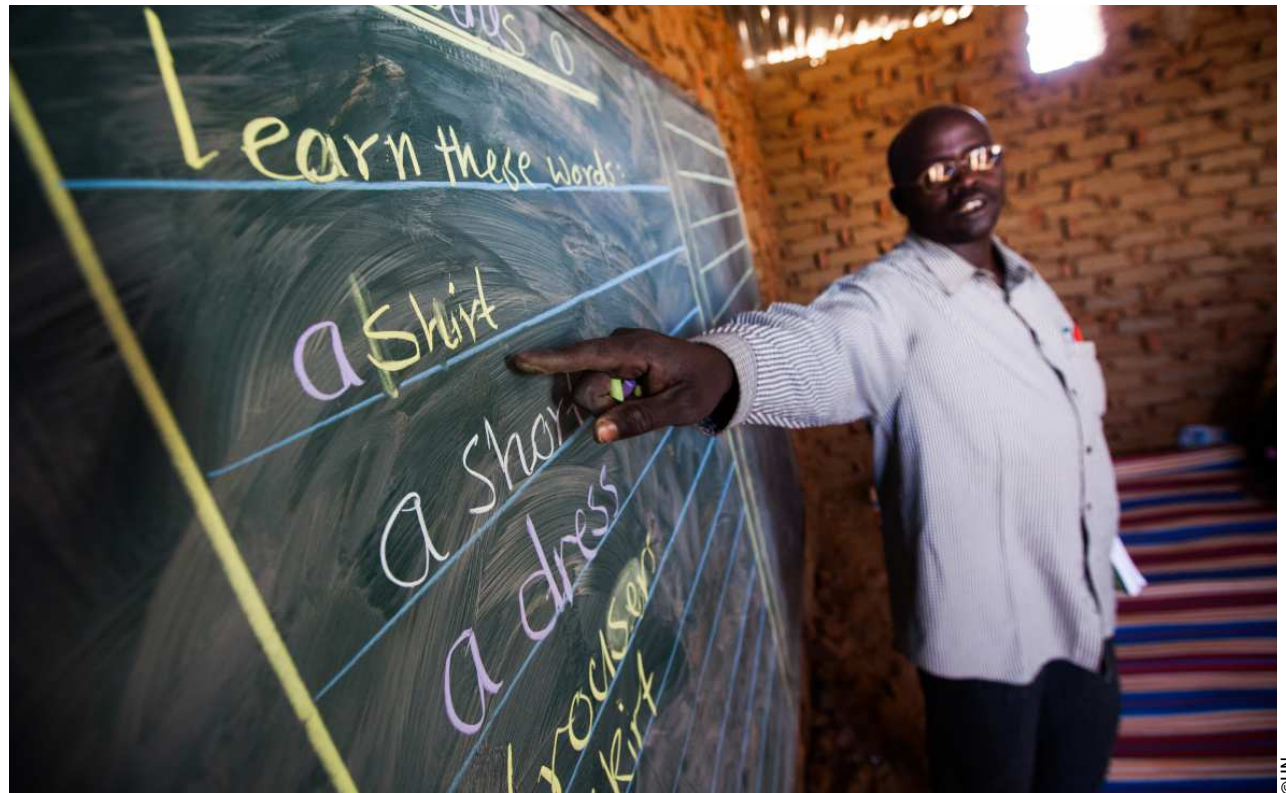 Learn these words:
a shirt
a shor
a dress
trouser
kirt
©UN